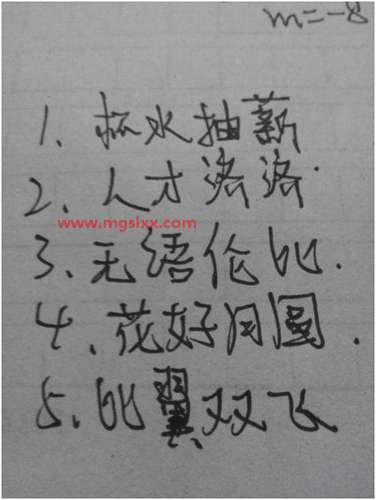 m=-8
1、杯水抽薪
2、人才济济
www.mgslxx.com
3、无语伦比.
4、花好月圆.
5、比翼双飞